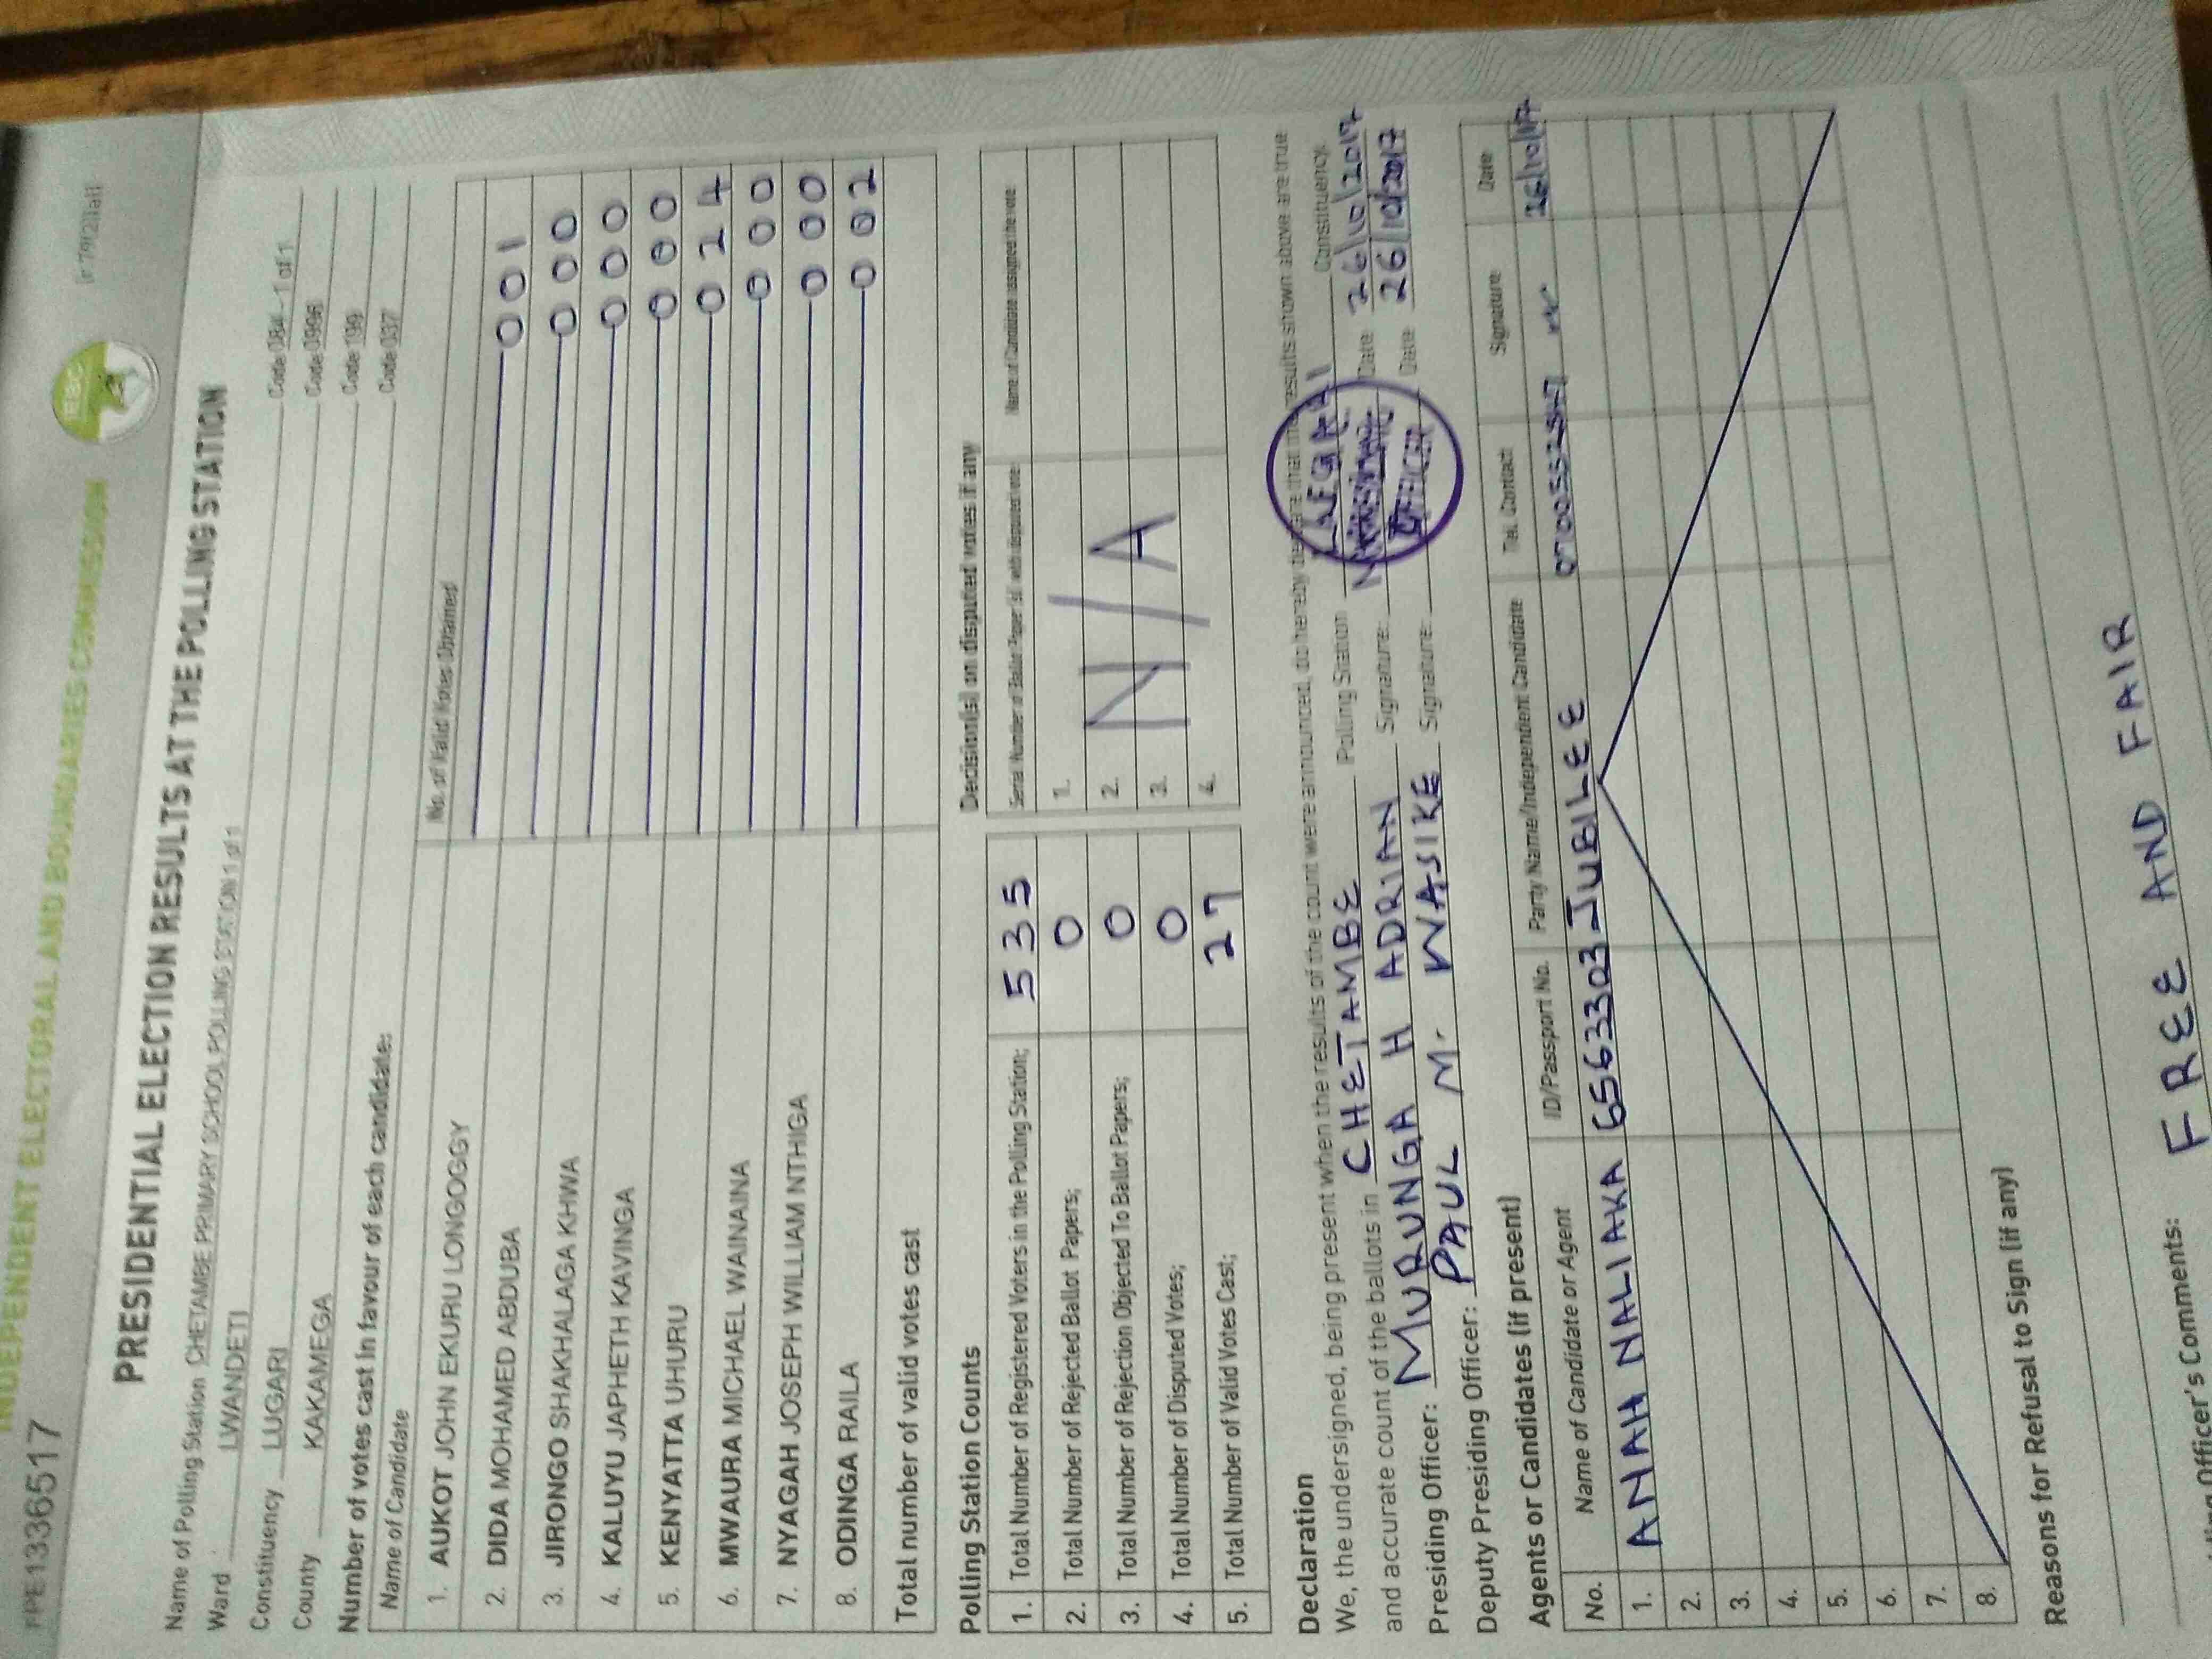 FPE1336517
INDEPENDENT ELECTORAL AND BOUNDARIES COMMISSION
IEBC
PRESIDENTIAL ELECTION RESULTS AT THE POLLING STATION
Name of Polling Station CHETAMBE PRIMARY SCHOOL POLLING STATION 1 of 1 Code 084 - 1 of 1
Ward LWANDETI Code 0996
Constituency LUGARI Code 199
County KAKAMEGA Code 037
Number of votes cast in favour of each candidate:
Name of Candidate No. of Valid Votes Obtained
1. AUKOT JOHN EKURU LONGOGGY 001
2. DIDA MOHAMED ABDUBA 000
3. JIRONGO SHAKHALAGA KHWA 000
4. KALUYU JAPHETH KAVINGA 000
5. KENYATTA UHURU 024
6. MWAURA MICHAEL WAINAINA 000
7. NYAGAH JOSEPH WILLIAM NTHIGA 000
8. ODINGA RAILA 002
Total number of valid votes cast
Polling Station Counts
1. Total Number of Registered Voters in the Polling Station; 535
2. Total Number of Rejected Ballot Papers; 0
3. Total Number of Rejection Objected To Ballot Papers; 0
4. Total Number of Disputed Votes; 0
5. Total Number of Valid Votes Cast; 27
Decision(s) on disputed votes if any
Serial Number of Ballot Paper(s) with disputed vote Name of Candidate assigned the vote
1.
2.
3.
4.
N/A
Declaration
We, the undersigned, being present when the results of the count were announced, do hereby declare that the results shown above are true
and accurate count of the ballots in CHETAMBE Polling Station LUGARI Constituency.
Presiding Officer: MURUNGA H ADRIAN Signature: Date 26/10/2017
Deputy Presiding Officer: PAUL M. WASIKE Signature: Date 26/10/2017
Agents or Candidates (if present)
No. Name of Candidate or Agent ID/Passport No. Party Name/Independent Candidate Tel. Contact Signature Date
1. ANAH NALIAKA 65633303 JUBILEE 26/10/17
2.
3.
4.
5.
6.
7.
8.
Reasons for Refusal to Sign (if any)
Officer's Comments: FREE AND FAIR